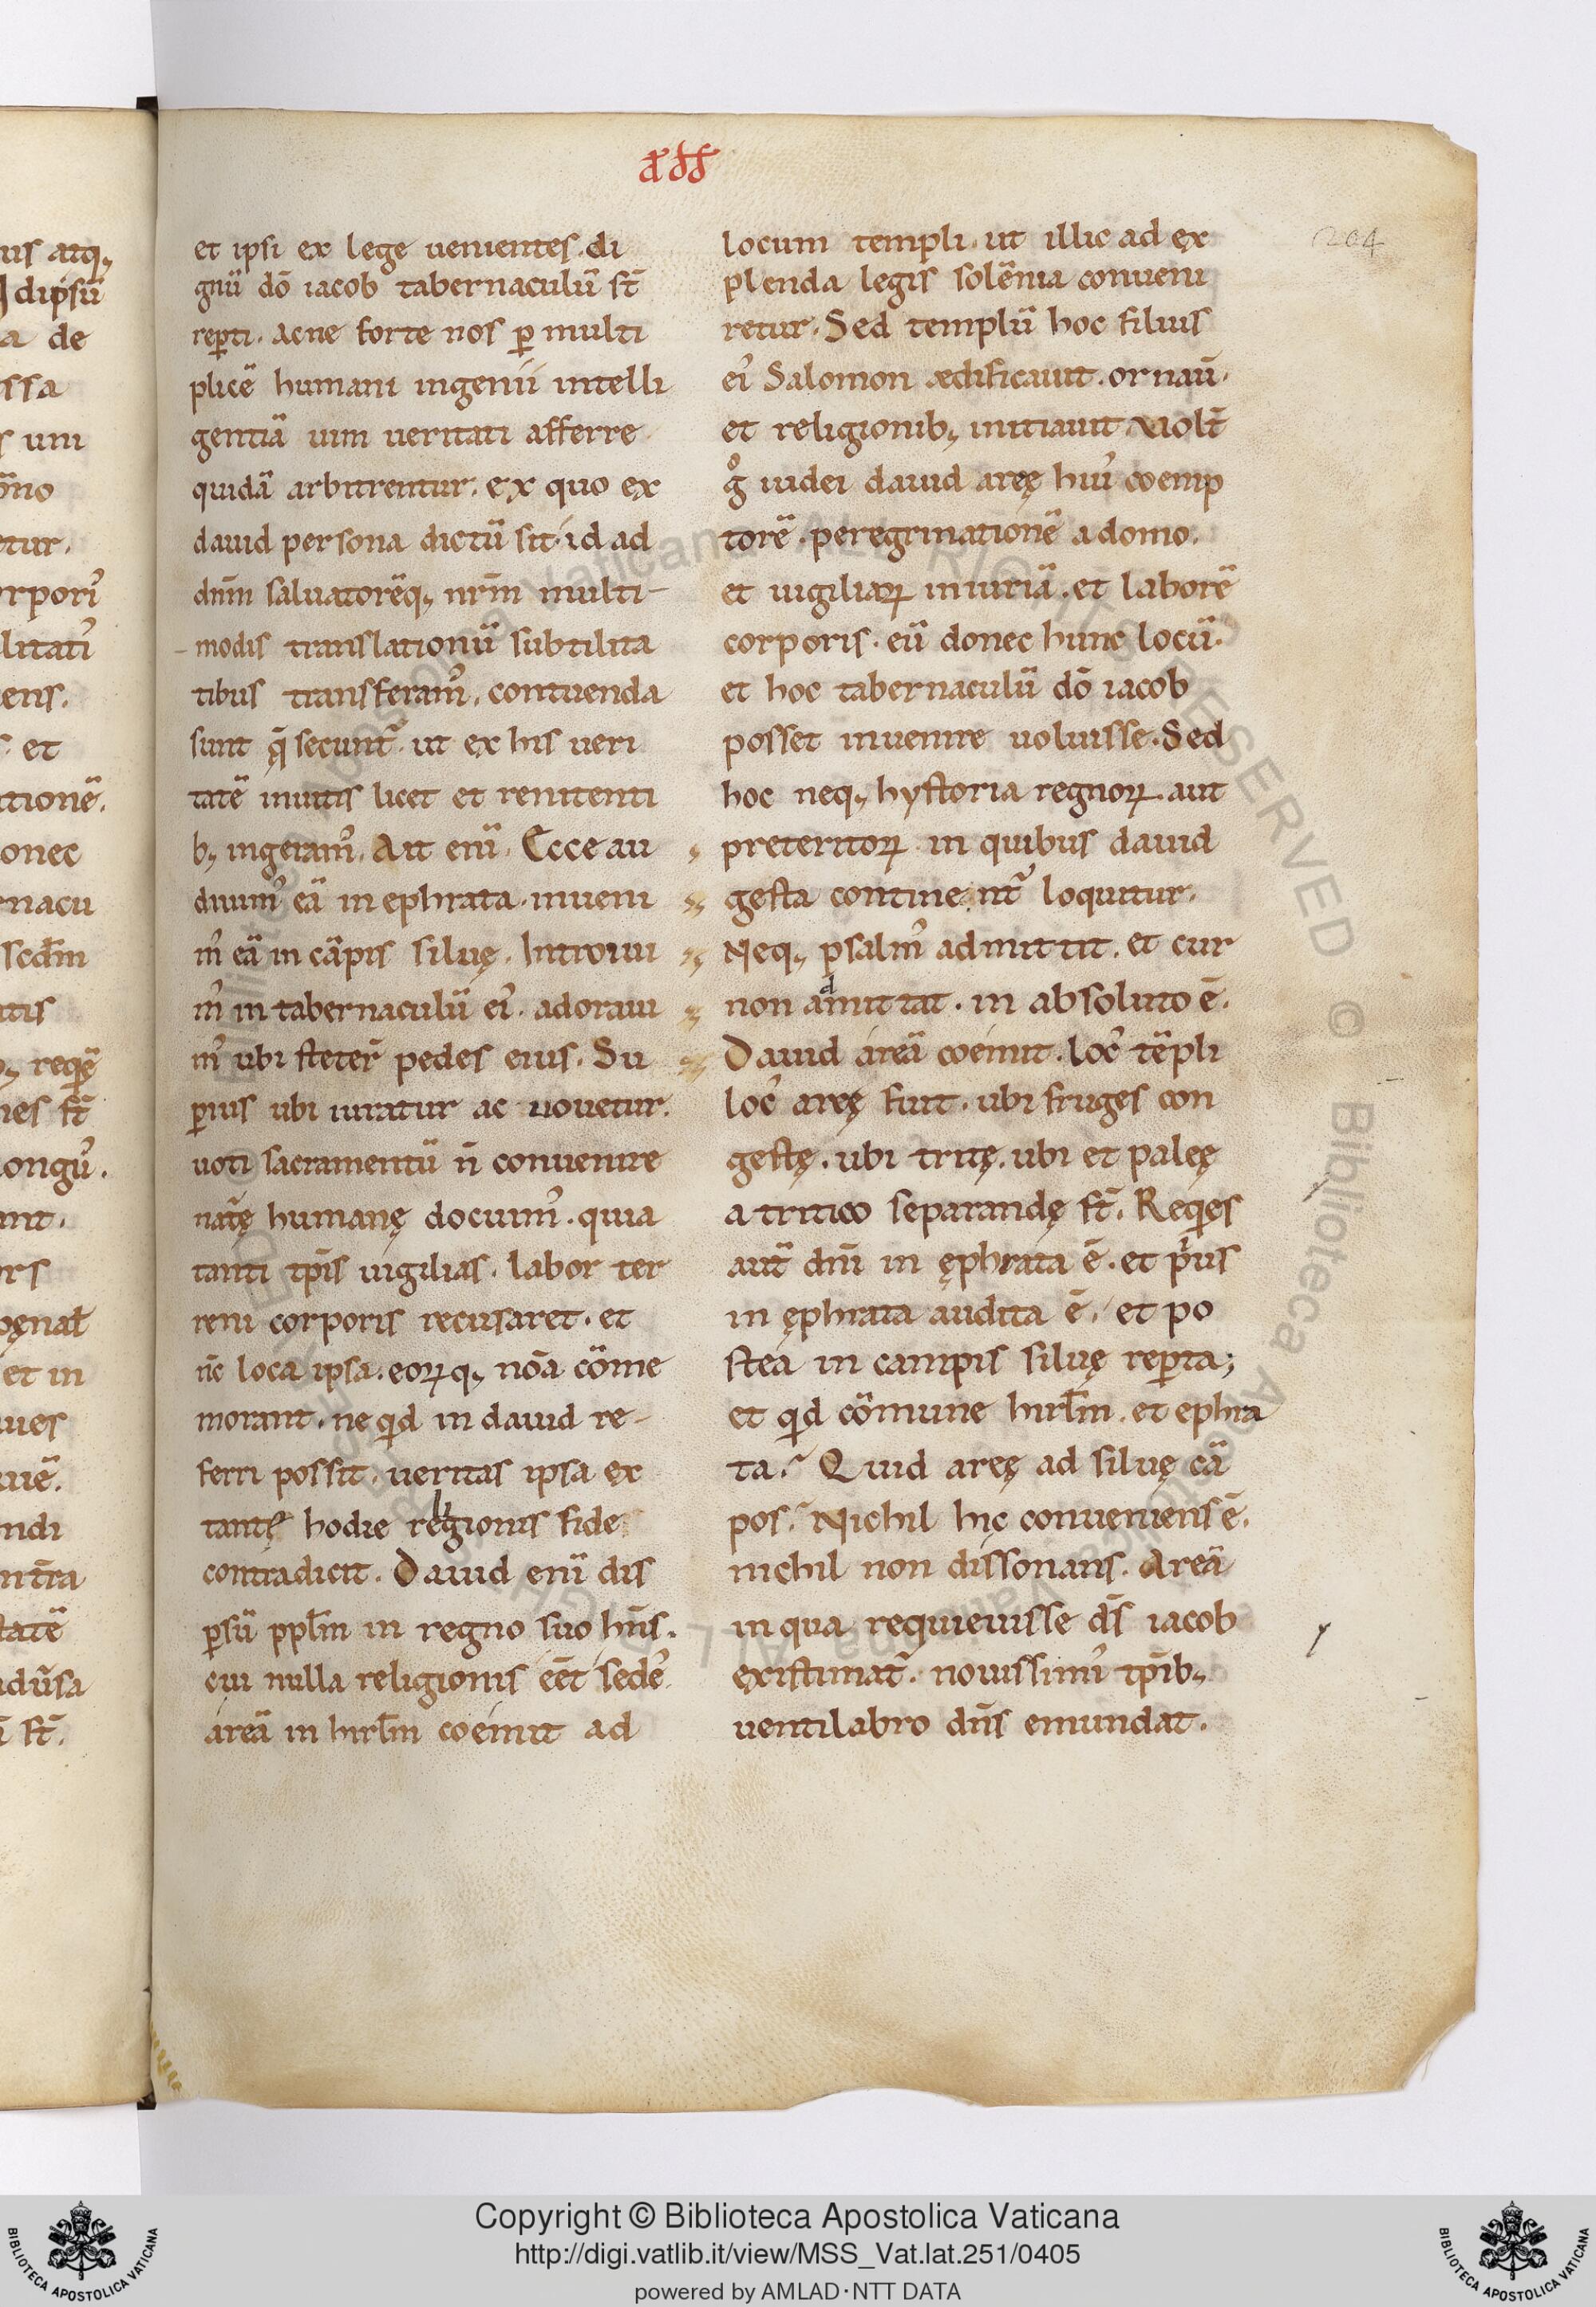 et ipsi ex lege uenientes. di
gnũ dõ iacob tabernaculũ st̃
rep̱ti. Ac ne forte nos p̱ multi
plicẽ humani ingenii intelli
gentiã uim ueritati afferre
quidã arbitrentur. ex quo ex
dauid persona dictũ sit. id ad
dnm̃ saluatorẽq; nrm̃ multi-
modis translationũ subtilita
tibus transferam᾽. contuenda
sunt q̃ secunt᷑. ut ex his ueri
tatẽ inuitis licet et renitenti
b; ingeram᾽. Ait enĩ. Ecce au
diuim᾽ eã in ephrata. inueni
m᾽ eã in cãpis siluę. Introiui
m᾽ in tabernaculũ ei᾽. adoraui
m᾽ ubi steter̃ pedes eius. Su
p̱ius ubi iuratur ac uouetur.
uoti sacramentũ ñ conuenire
nat̃ę humanę docuim᾽. quia
tanti tp̃is uigilias. labor ter
reni corporis recusaret. et
ñc loca ipsa. eoꝝq; nõa cõme
morant. ne qd in dauid re-
ferri possit. ueritas ipsa ex
tantę hodie religionis fide
contradicit. Dauid enĩ dis
p̱sũ ppl̃m in regno suo hñs.
cui nulla religionis eẽt sede᾽.
areã in hirl̃m coemit ad
locum templi. ut illic ad ex
plenda legis solẽnia conueni
retur. Sed templũ hoc filius
ei᾽ Salomon ædificauit. ornaũ.
et religionib; initiauit. Nolt̃
gͦ iudei dauid aręę hui᾽ coemp
torẽ. peregrinationẽ a domo.
et uigiliaꝝ iniuriã. et laborẽ
corporis. eũ donec hunc locũ.
et hoc tabernaculũ dõ iacob
posset inuenire uoluisse. Sed
hoc neq; hystoria regnoꝝ. aut
preteritoꝝ in quibus dauid
gesta continent᷑ loquitur.
Neq; psalm᾽ admittit. et cur
non admittat. in absoluto ẽ.
Dauid areã coemit. loc᾽ tẽpli
loc᾽ areę fuit. ubi fruges con
gestę. ubi tritę. ubi et paleę
a tritico separandę st̃. Reqes
aut̃ dnĩ in ęphrata ẽ. et pius
in ęphrata audita ẽ. et po
stea in campis siluę rep̱ta;
et qd cõmune hirl̃m. et ephra
ta. Quid areę ad siluę cã
pos. Nichil hic conueniens ẽ.
nichil non dissonans. Areã
in qua requieuisse ds̃ iacob
existimat᷑. nouissimi᾽ tp̃ib;
uentilabro dñs emundat.
204
Copyright © Biblioteca Apostolica Vaticana
http://digi.vatlib.it/view/MSS_Vat.lat.251/0405
powered by AMLAD·NTT DATA